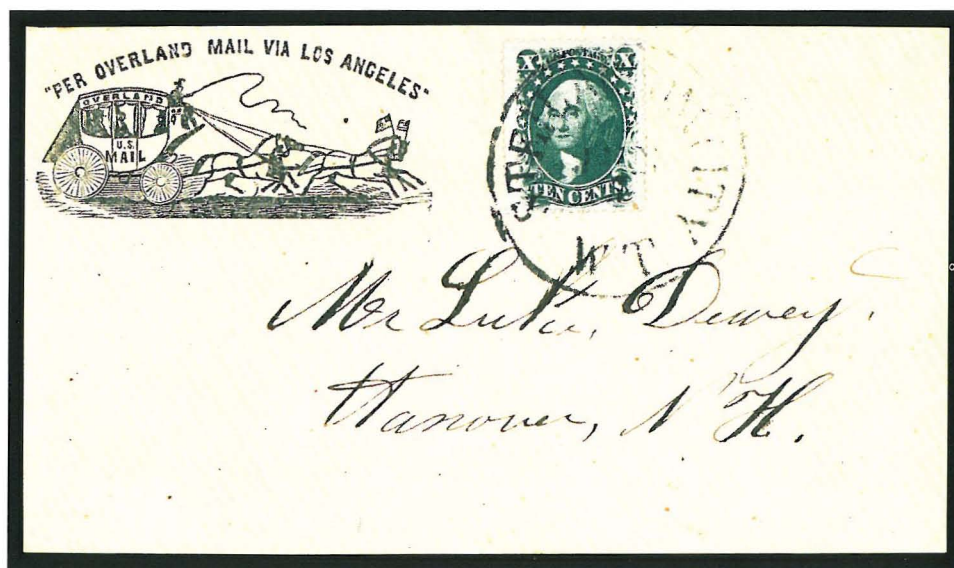 "PER OVERLAND MAIL VIA LOS ANGELES"
OVERLAND
U.S.
MAIL
X X
U.S. POSTAGE
TEN CENTS
CITY
W T
Mr Luke Dewey.
Hanover, N H.